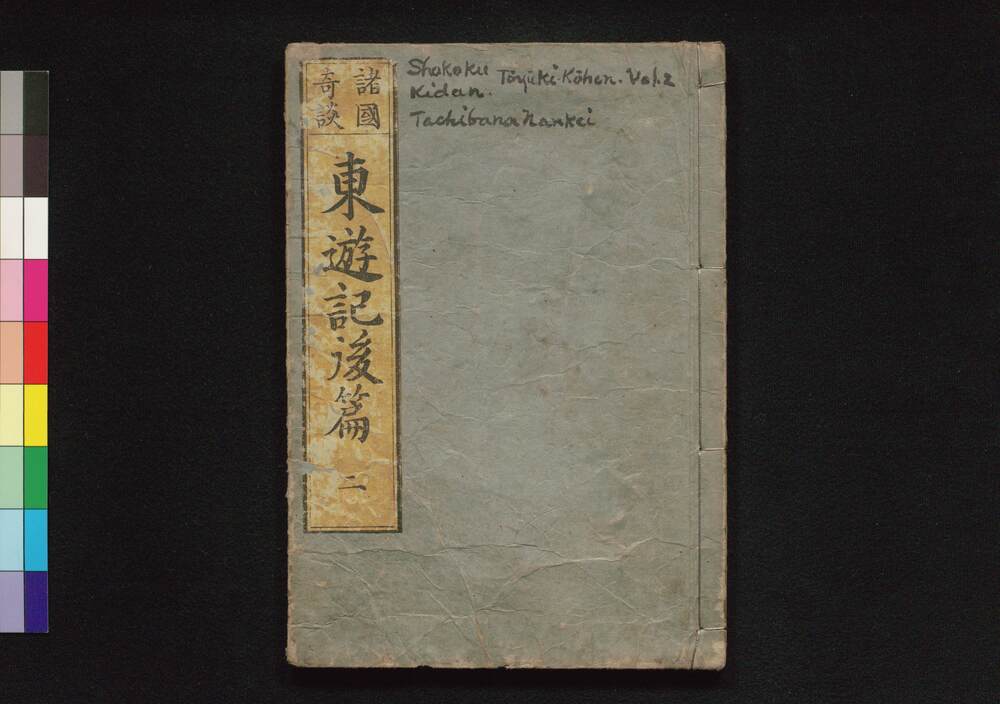 諸國
奇談
東遊記後篇
二
Shokoku Tōyūki-Kōhen. Vol.2
Kidan.
Tachibana Nankei